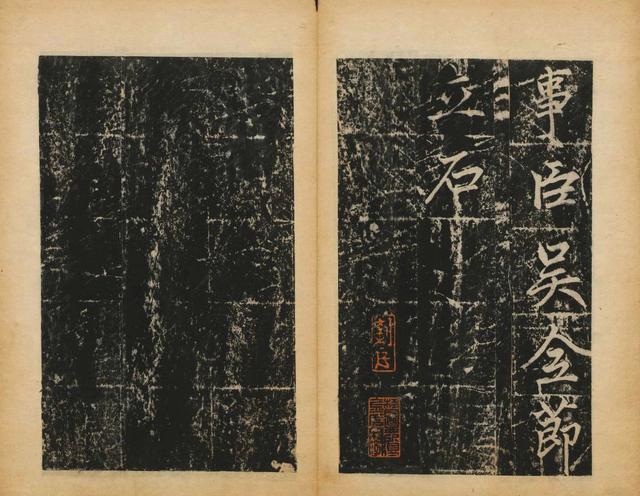 事臣吴全節
立石